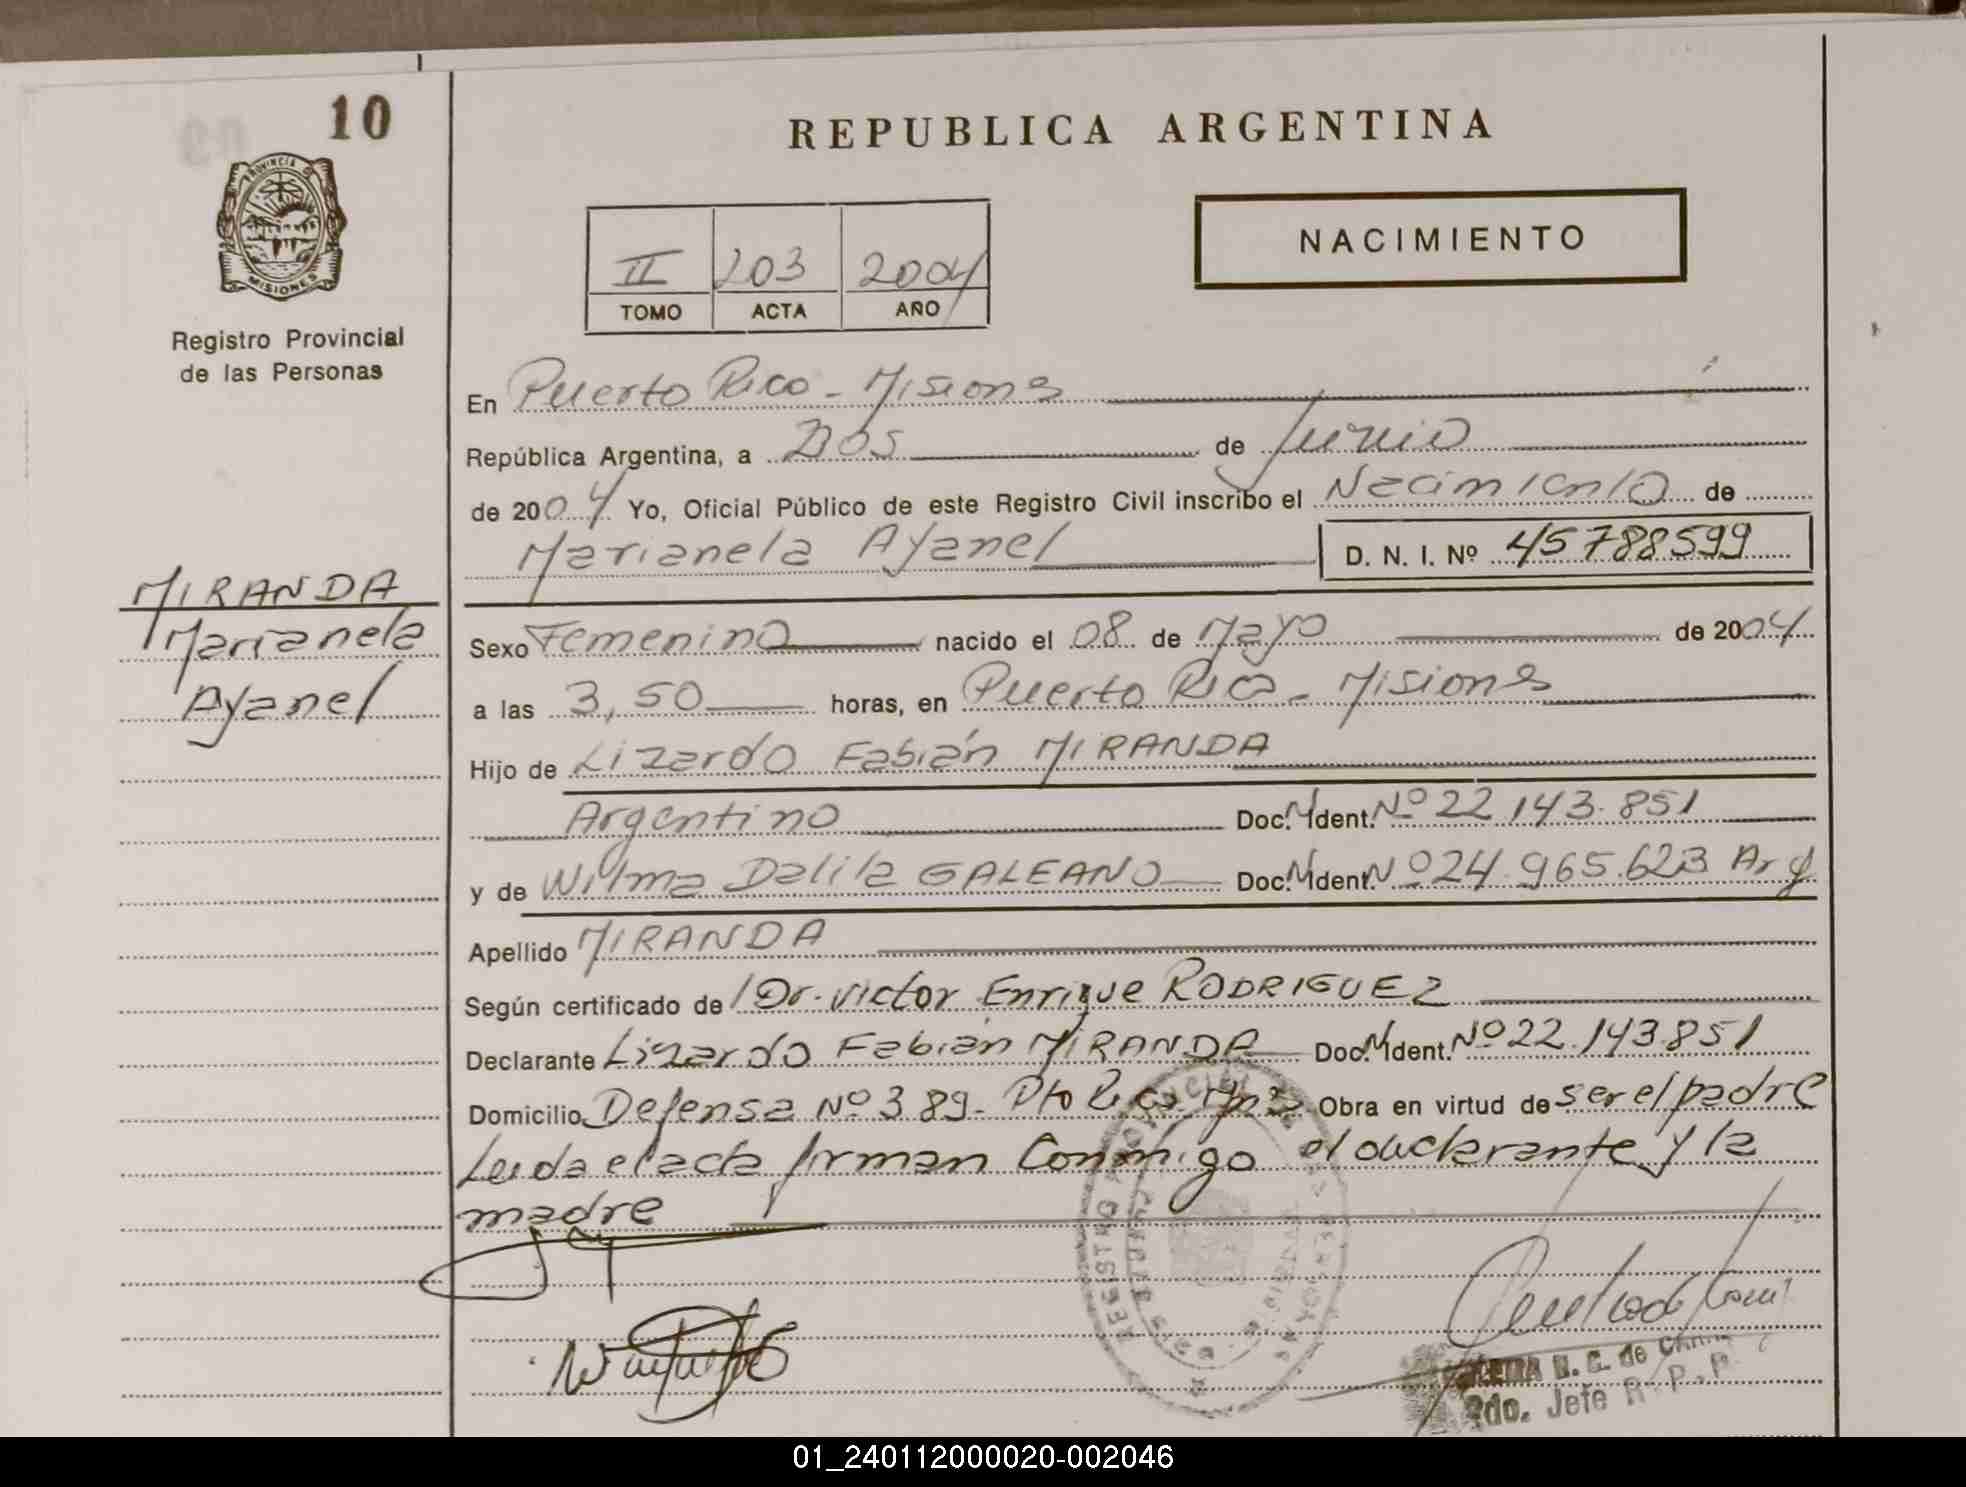 10
PROVINCIA DE
MISIONES
Registro Provincial
de las Personas
MIRANDA
Marianela
Ayanel
REPUBLICA ARGENTINA
II 203 2004
TOMO ACTA AÑO
NACIMIENTO
En Puerto Rico - Misiones
República Argentina, a Dos de Junio
de 2004 Yo, Oficial Público de este Registro Civil inscribo el Nacimiento de
Marianela Ayanel D. N. I. Nº 45788599
Sexo Femenino nacido el 08 de Mayo de 2004
a las 3,50 horas, en Puerto Rico - Misiones
Hijo de Lizardo Fabián MIRANDA
Argentino Doc. Ident. Nº 22.143.851
y de Wilma Dalila GALEANO Doc. Ident. Nº 24.965.623 Arg
Apellido MIRANDA
Según certificado de Dr. Victor Enrique RODRIGUEZ
Declarante Lizardo Fabián MIRANDA Doc. Ident. Nº 22.143.851
Domicilio Defensa Nº 389 - Pto Rico - Mnes Obra en virtud de ser el padre
Leida el acta firman Conmigo el declarante y la
madre
REGISTRO PROVINCIAL
2do. Jefe R.P.P.
01_240112000020-002046